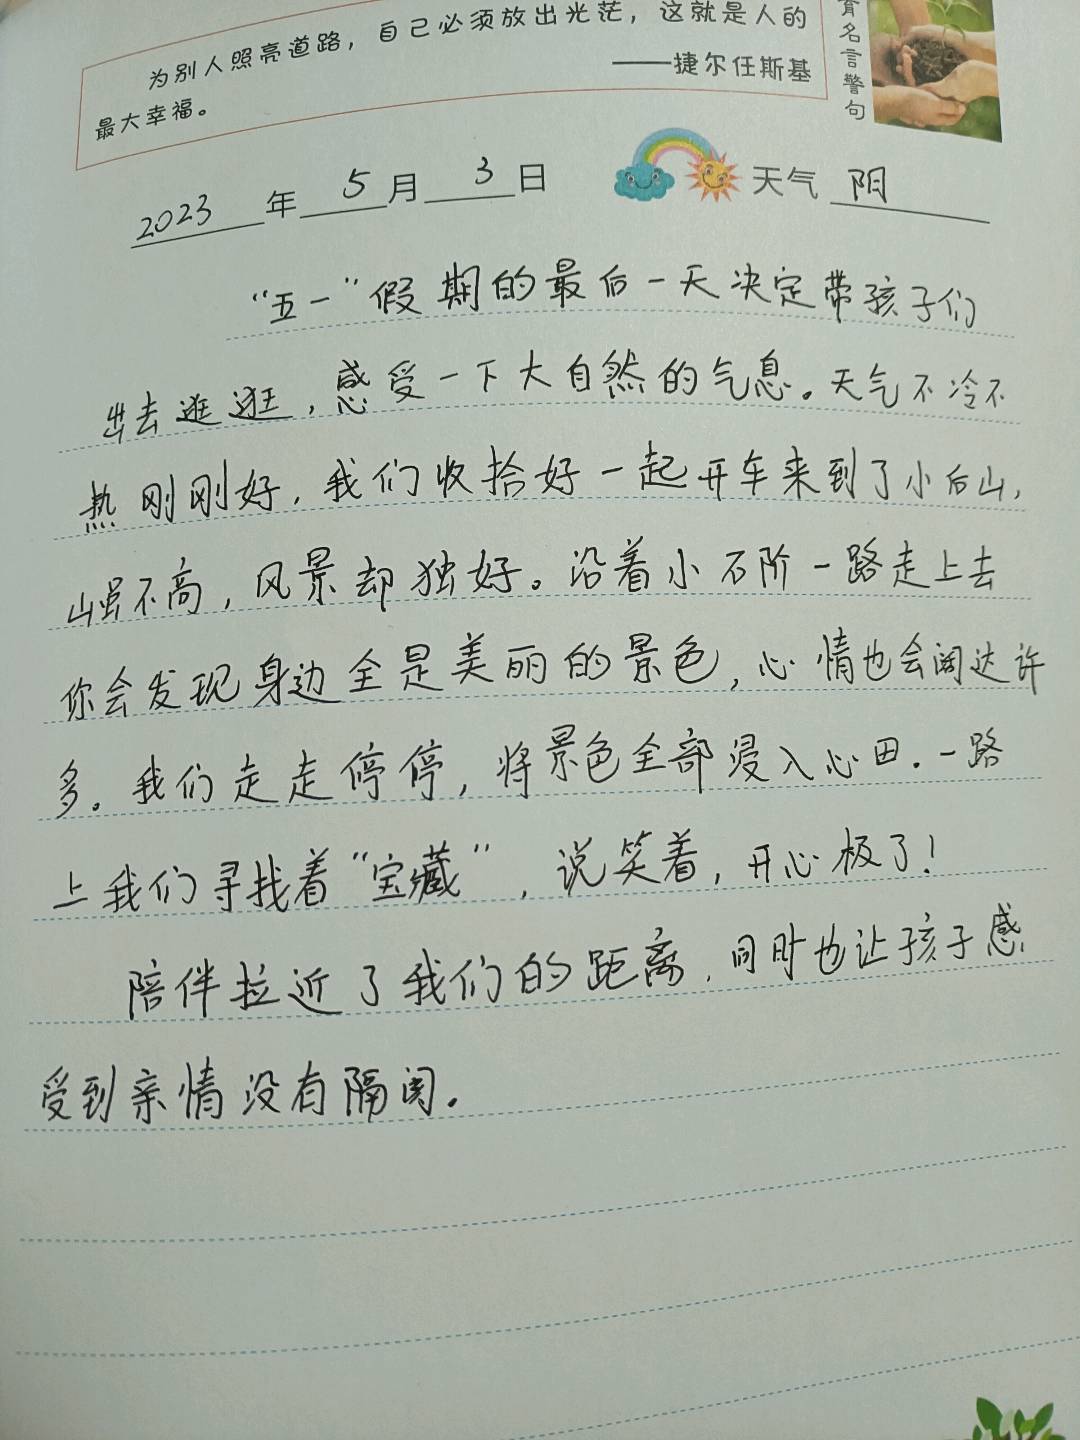 为别人照亮道路，自己必须放出光茫，这就是人的
最大幸福。
——捷尔任斯基
育名言警句
2023年5月3日 天气 阳
“五一”假期的最后一天决定带孩子们
出去逛逛，感受一下大自然的气息。天气不冷不
热刚刚好，我们收拾好一起开车来到了小后山，
山虽不高，风景却独好。沿着小石阶一路走上去
你会发现身边全是美丽的景色，心情也会阔达许
多。我们走走停停，将景色全部浸入心田。一路
上我们寻找着“宝藏”，说笑着，开心极了！
陪伴拉近了我们的距离，同时也让孩子感
受到亲情没有隔阂。